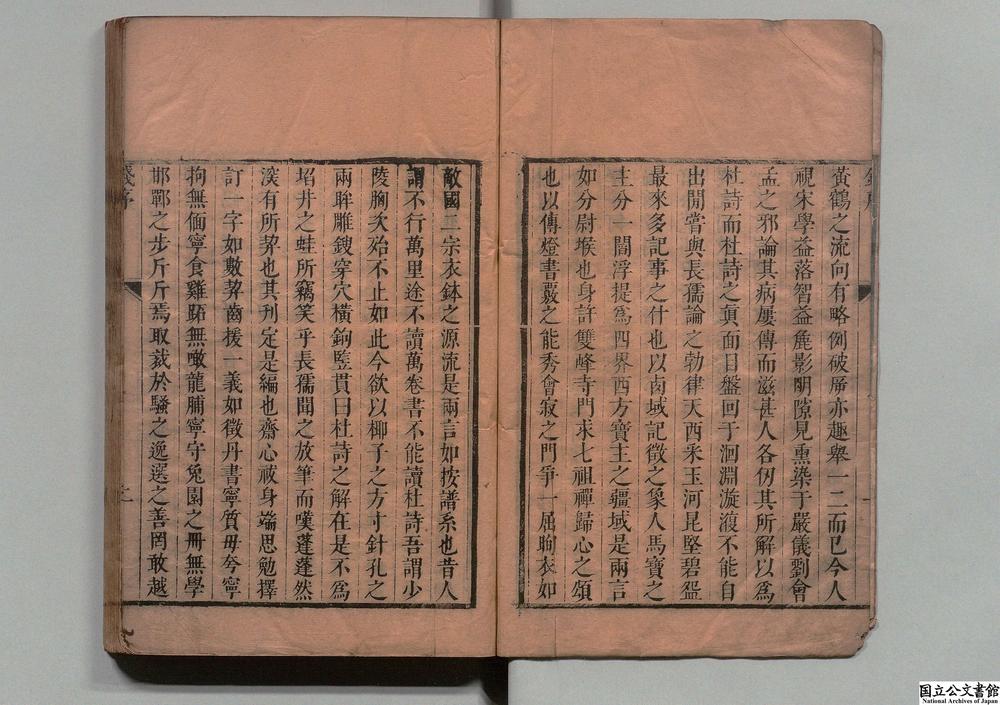 黃鶴之流向有略例破斥亦趣舉一二而已今人
視宋學益落智益麄影明隙見熏染于嚴儀劉會
孟之邪論其病屢傳而滋甚人各仞其所解以為
杜詩而杜詩之真面目盤回于洄淵漩澓不能自
出閒嘗與長孺論之勃律天西采玉河昆堅碧盌
最來多記事之什也以西域記徵之象人馬寶之
主分一閻浮提為四界西方寶主之疆域是兩言
如分尉堠也身許雙峰寺門求七祖禪歸心之頌
也以傳燈書覈之能秀會寂之門爭一屈眴衣如
敵國二宗衣鉢之源流是兩言如按譜系也昔人
謂不行萬里途不讀萬卷書不能讀杜詩吾謂少
陵胸次殆不止如此今欲以椰子之方寸針孔之
兩眸雕鎪穿穴橫鉤豎貫曰杜詩之解在是不為
埳井之蛙所竊笑乎長孺聞之放筆而嘆蓬蓬然
深有所契也其刊定是編也齋心祓身端思勉擇
訂一字如數契齒援一義如徵丹書寧質毋夸寧
拘無偭寧食雞跖無噉龍脯寧守兔園之冊無學
邯鄲之步斤斤焉取裁於騷之逸選之善罔敢越
國立公文書館
National Archives of Japan